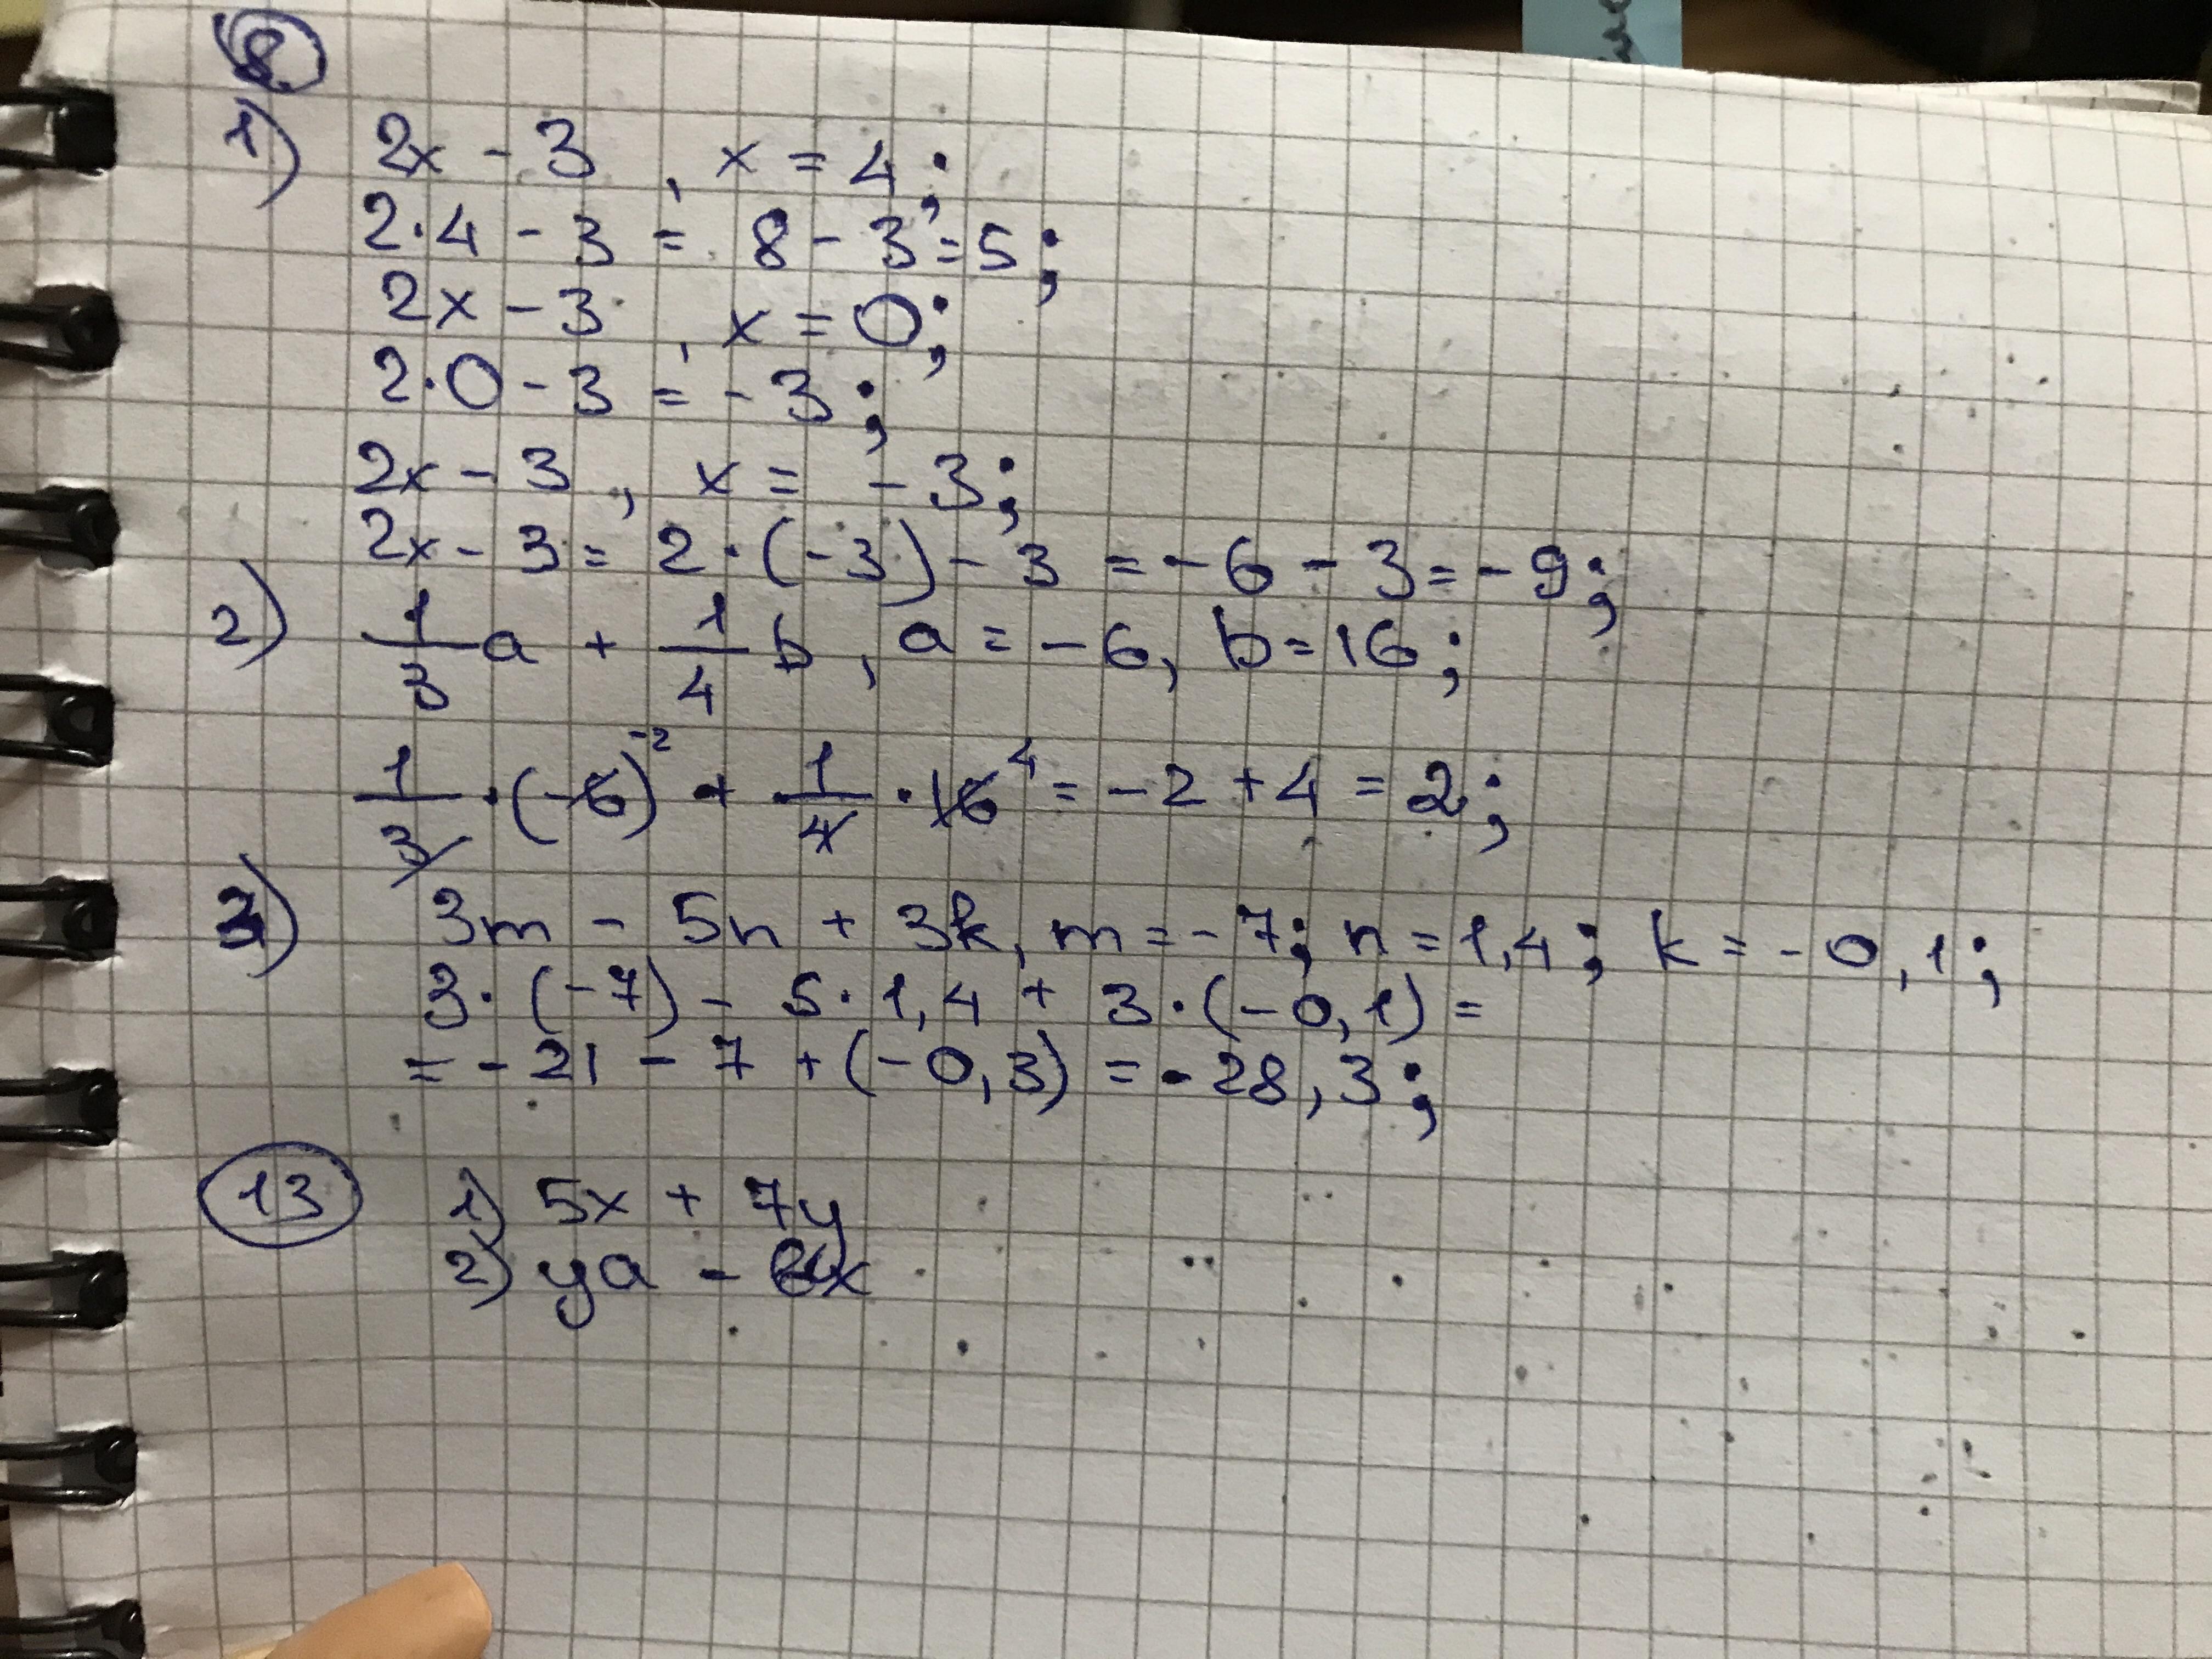 8.
1) 2x - 3 , x = 4;
2·4 - 3 = 8 - 3 = 5;
2x - 3 , x = 0;
2·0 - 3 = - 3;
2x - 3 , x = - 3;
2x - 3 = 2·(-3) - 3 = - 6 - 3 = - 9;
2) 1/3 a + 1/4 b, a = - 6, b = 16;
1/3 · (-6) -2 + 1/4 · 16 4 = - 2 + 4 = 2;
3) 3m - 5n + 3k, m = - 7; n = 1,4; k = - 0,1;
3·(-7) - 5·1,4 + 3·(-0,1) =
= - 21 - 7 + (-0,3) = - 28,3;
13 1) 5x + 7y
2) ya -